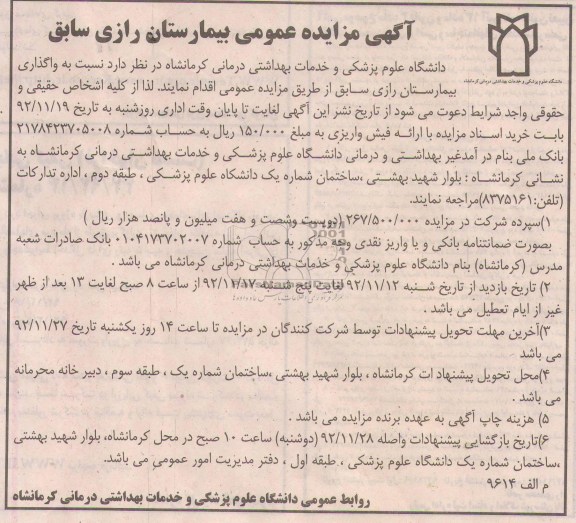 آگهی مزایده عمومی بیمارستان رازی سابق
دانشگاه علوم پزشکی و خدمات بهداشتی درمانی کرمانشاه
دانشگاه علوم پزشکی و خدمات بهداشتی درمانی کرمانشاه در نظر دارد نسبت به واگذاری
بیمارستان رازی سابق از طریق مزایده عمومی اقدام نمایند. لذا از کلیه اشخاص حقیقی و
حقوقی واجد شرایط دعوت می شود از تاریخ نشر این آگهی لغایت تا پایان وقت اداری روزشنبه به تاریخ ۹۲/۱۱/۱۹
بابت خرید اسناد مزایده با ارائه فیش واریزی به مبلغ ۱۵۰/۰۰۰ ریال به حساب شماره ۲۱۷۸۴۲۳۷۰۵۰۰۸
بانک ملی بنام در آمدغیر بهداشتی و درمانی دانشگاه علوم پزشکی و خدمات بهداشتی درمانی کرمانشاه به
نشانی کرمانشاه : بلوار شهید بهشتی ،ساختمان شماره یک دانشگاه علوم پزشکی ، طبقه دوم ، اداره تدارکات
(تلفن:۸۳۷۵۱۶۱)مراجعه نمایند.
۱)سپرده شرکت در مزایده ۲۶۷/۵۰۰/۰۰۰ (دویست وشصت و هفت میلیون و پانصد هزار ریال )
بصورت ضمانتنامه بانکی و یا واریز نقدی وجه مذکور به حساب شماره ۰۱۰۴۱۷۳۷۰۲۰۰۷ بانک صادرات شعبه
مدرس (کرمانشاه) بنام دانشگاه علوم پزشکی و خدمات بهداشتی درمانی کرمانشاه می باشد .
۲) تاریخ بازدید از تاریخ شنبه ۹۲/۱۱/۱۲ لغایت پنج شنبه ۹۲/۱۱/۱۷ از ساعت ۸ صبح لغایت ۱۳ بعد از ظهر
غیر از ایام تعطیل می باشد .
۳)آخرین مهلت تحویل پیشنهادات توسط شرکت کنندگان در مزایده تا ساعت ۱۴ روز یکشنبه تاریخ ۹۲/۱۱/۲۷
می باشد
۴)محل تحویل پیشنهاد ات کرمانشاه ، بلوار شهید بهشتی ،ساختمان شماره یک ، طبقه سوم ، دبیر خانه محرمانه
می باشد .
۵) هزینه چاپ آگهی به عهده برنده مزایده می باشد .
۶)تاریخ بازگشایی پیشنهادات واصله ۹۲/۱۱/۲۸ (دوشنبه) ساعت ۱۰ صبح در محل کرمانشاه، بلوار شهید بهشتی
،ساختمان شماره یک دانشگاه علوم پزشکی ، طبقه اول ، دفتر مدیریت امور عمومی می باشد.
م الف ۹۶۱۴
روابط عمومی دانشگاه علوم پزشکی و خدمات بهداشتی درمانی کرمانشاه